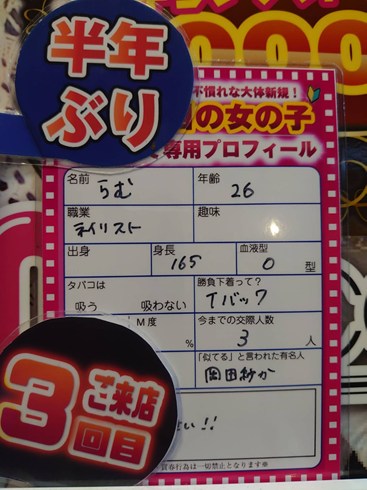 半年
ぶり
不慣れな大体新規！
の女の子
専用プロフィール
名前
らむ
年齢
26
職業
ネイリスト
趣味
出身
身長
165
血液型
O 型
タバコは
吸う 吸わない
勝負下着って？
Tバック
M度
%
今までの交際人数
3 人
「似てる」と言われた有名人
岡田紗か
ご来店
3回目
い!!
買春行為は一切禁止となります※